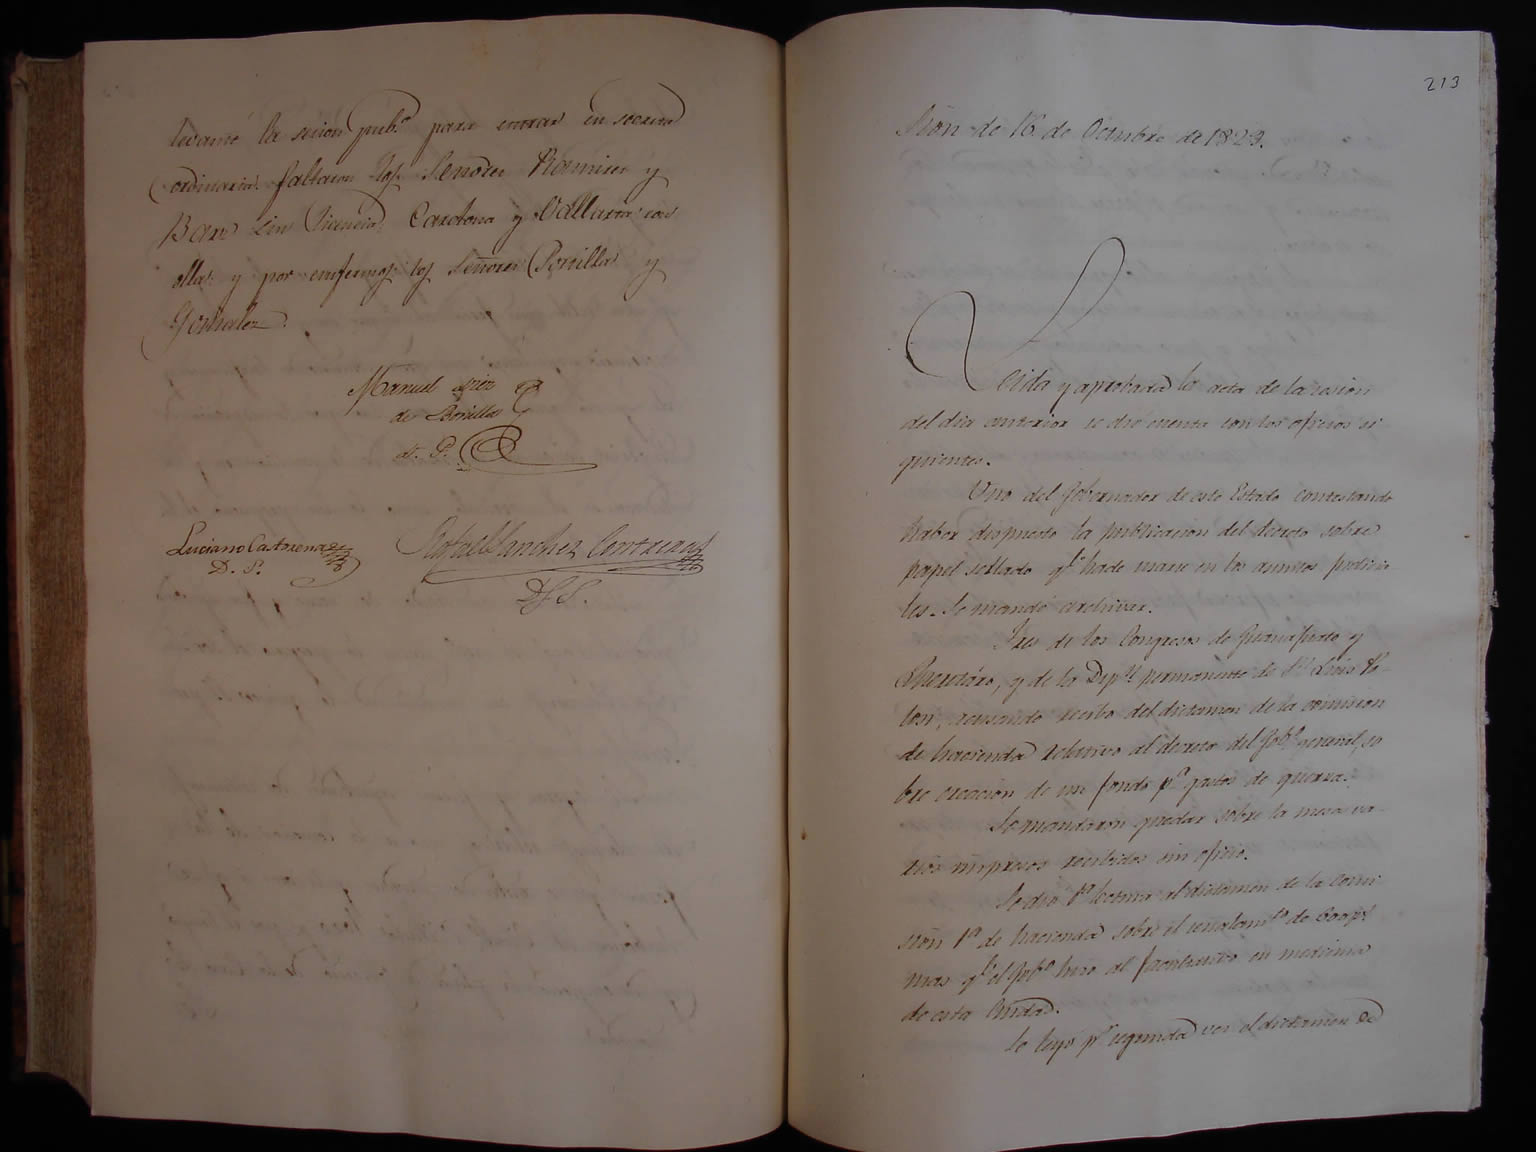 levamé la sesion pub.ª para entrar en secreta
ordinaria: faltaron los Señores Ramires y
sin licencia: Cardona y Vallarta con
ella: y por enfermos los Señores Portilla y
Gonzalez.
Manuel
de Bonilla
d. P.
Luciano Castorena
D. S.
Rafael Sanchez Contreras
D. S.
213
Sion de 16 de Octubre de 1829.
Leida y aprobada la acta de la sesion
del dia anterior se dió cuenta con los oficios si
guientes.
Uno del Gobernador de este Estado contestando
haber dispuesto la publicacion del decreto sobre
papel sellado q.ᵉ ha de usarse en los asuntos judicia
les. Se mandó archivar.
Tres de los Congresos de Guanajuato y
Queretáro, y de la Dip.ⁿ permanente de S. Luis Po-
tosi, acusando recibo del dictamen de la comision
de hacienda relativo al decreto del Gob.º general so
bre creacion de un fondo p.ª gastos de guerra.
Se mandaron quedar sobre la mesa va-
rios impresos recibidos sin oficio.
Se dió 1.ª lectura al dictamen de la Comi
sion 1.ª de hacienda sobre el
q.ᵉ el Gob.º hizo al facultativo en medicina
de esta Ciudad.
Se leyó p.ʳ segunda vez el dictamen de